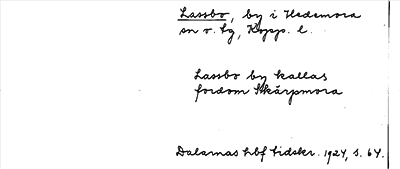 Lassbo, by i Hedemora
sn o. tg, Kopp. l.
Lassbo by kallas
fordom Skärpmora
Dalarnas hbf tidskr. 1924, s. 64.